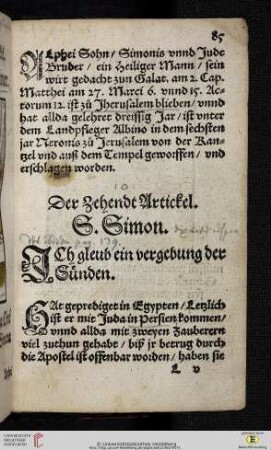 85
ALphei Sohn / Simonis vnnd Jude
Bruder / ein Heiliger Mann / sein
wirt gedacht zun Galat. am 2. Cap.
Matthei am 27. Marci 6. vnnd 15. Ac-
torum 12. ist zů Jherusalem blieben / vnnd
hat allda gelehret dreissig Jar / ist vnter
dem Landpfleger Albino in dem sechsten
jar Neronis zů Jerusalem von der Kan-
tzel vnd auß dem Tempel geworffen / vnd
erschlagen worden.
10
Der Zehendt Artickel.
S. Simon.
ICh gleub ein vergebung der
Sünden.
HAt geprediget in Egypten / Letzlich
ist er mit Juda in Persien kommen /
vnnd allda mit zweyen Zauberern
viel zuthun gehabt / biß jr betrug durch
die Apostel ist offenbar worden / haben sie
L v
UNIVERSITÄTS-BIBLIOTHEK HEIDELBERG
© Universitätsbibliothek Heidelberg